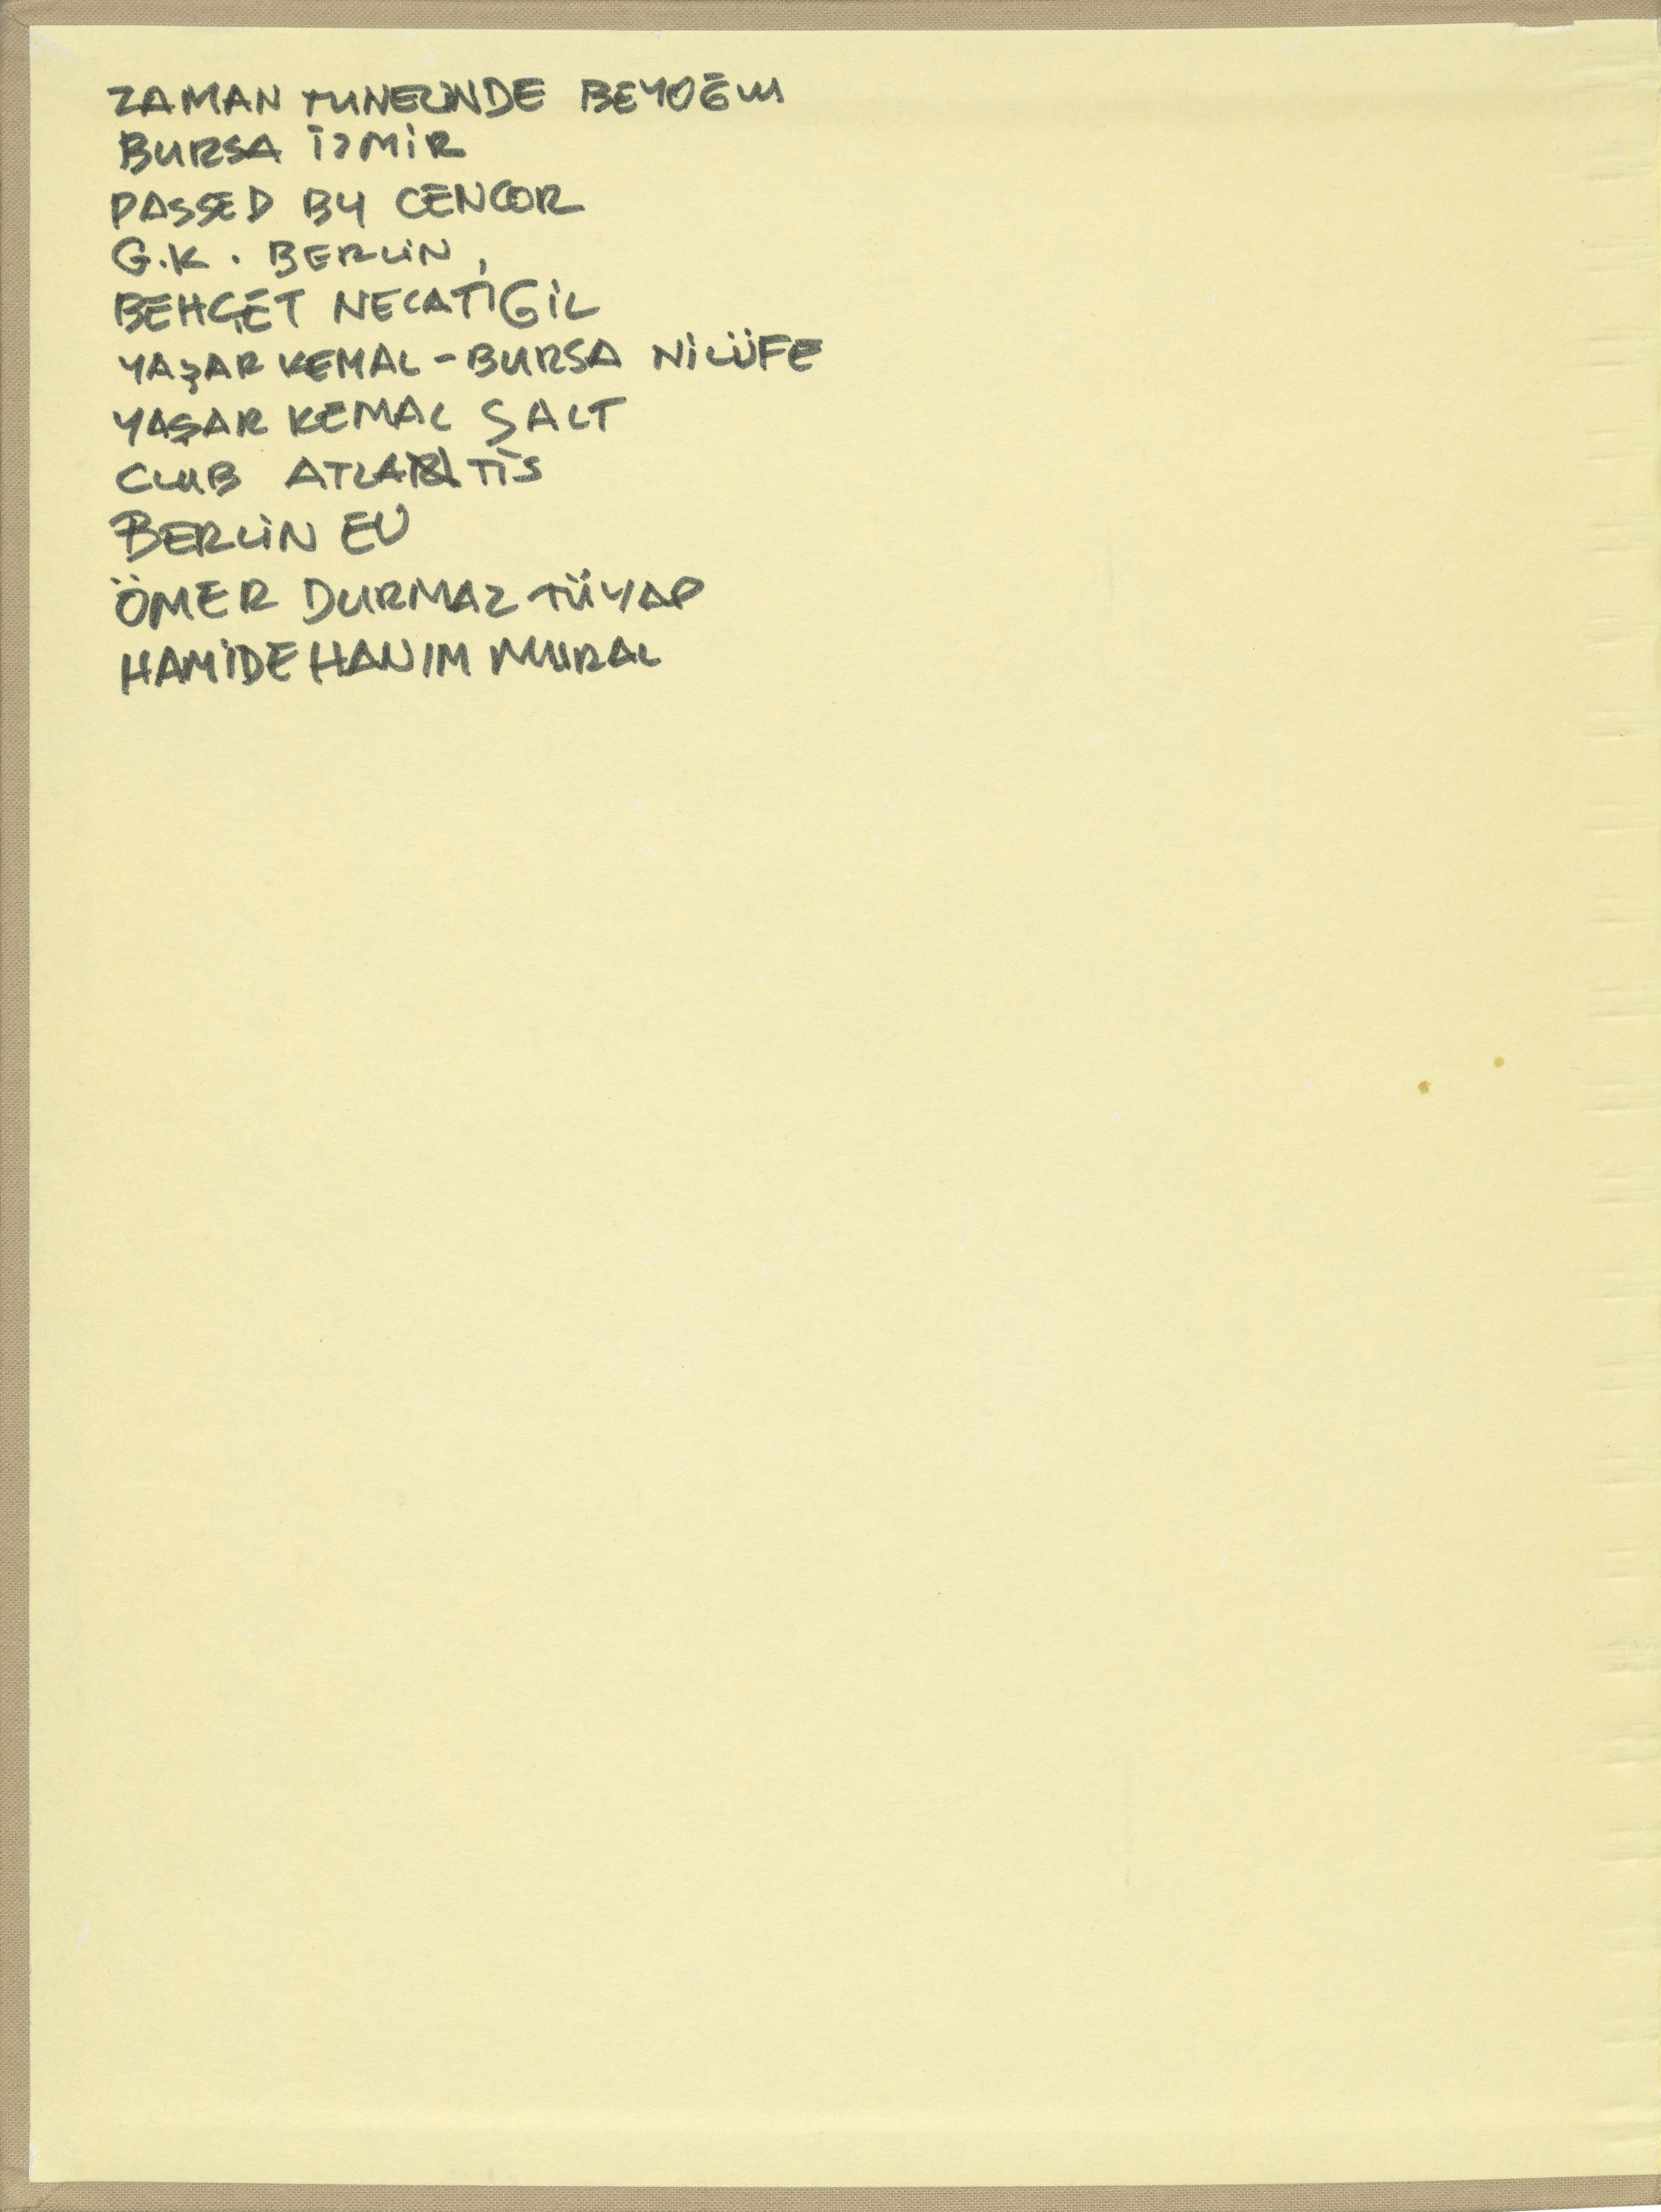 ZAMAN TUNELİNDE BEYOĞLU
BURSA İZMİR
PASSED BY CENCOR
G.K. BERLİN,
BEHÇET NECATİGİL
YAŞAR KEMAL - BURSA NİLÜFE
YAŞAR KEMAL ŞALT
CLUB ATLANTİS
BERLİN EV
ÖMER DURMAZ TÜYAP
HAMİDE HANIM MURAL